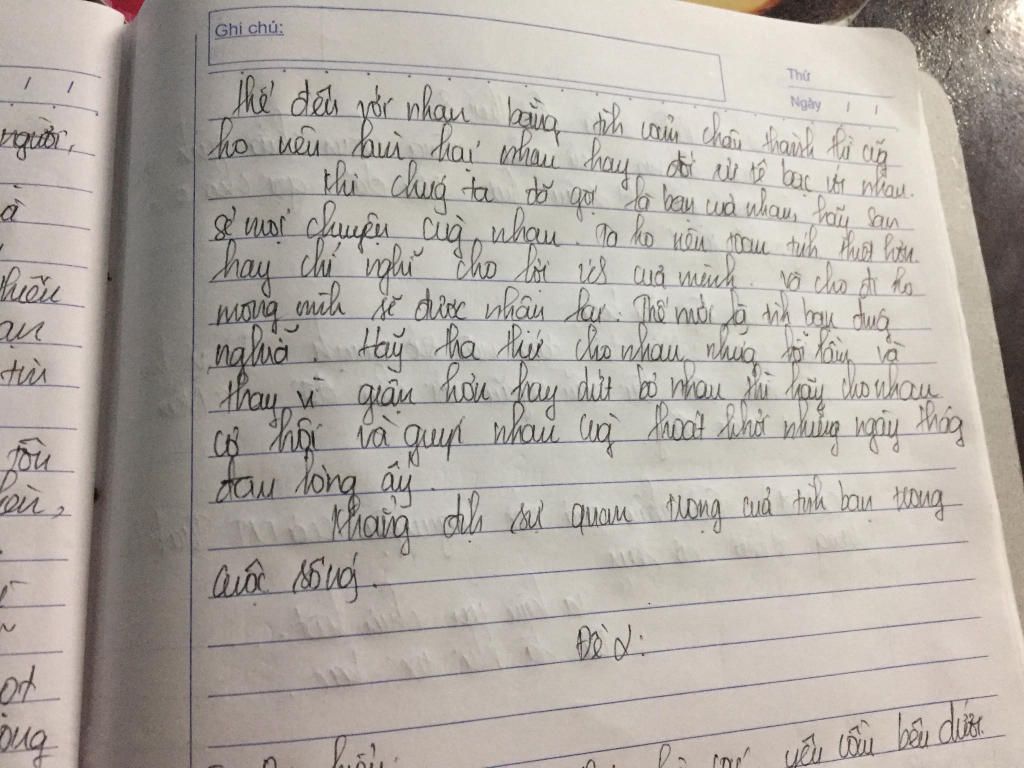 Ghi chú:
Thứ
Ngày / /
/ /
người,
à
thế đến với nhau bằng tình cảm chân thành thì cũg
ko nên làm hại nhau hay đối xử tệ bạc với nhau.
Khi chúg ta đã gọi là bạn của nhau, hãy san
sẻ mọi chuyện cùg nhau. Ta ko nên toan tính thiệt hơn
hay chỉ nghĩ cho lời ích cuả mình. Và cho đi ko
mong mìh sẽ được nhận lại. Thế mới là tìh bạn đúg
nghĩa. Hãy tha thứ cho nhau nhữg lỗi lầm và
thay vì giận hờn hay dứt bỏ nhau thì hãy cho nhau
cơ hội và giúp nhau cùg thoát khỏi những ngày thág
đau lòng ấy.
Khẳng địh sự quan trọng cuả tình bạn trong
cuộc sốngś.
Đề 2:
yêu cầu bên dưới.